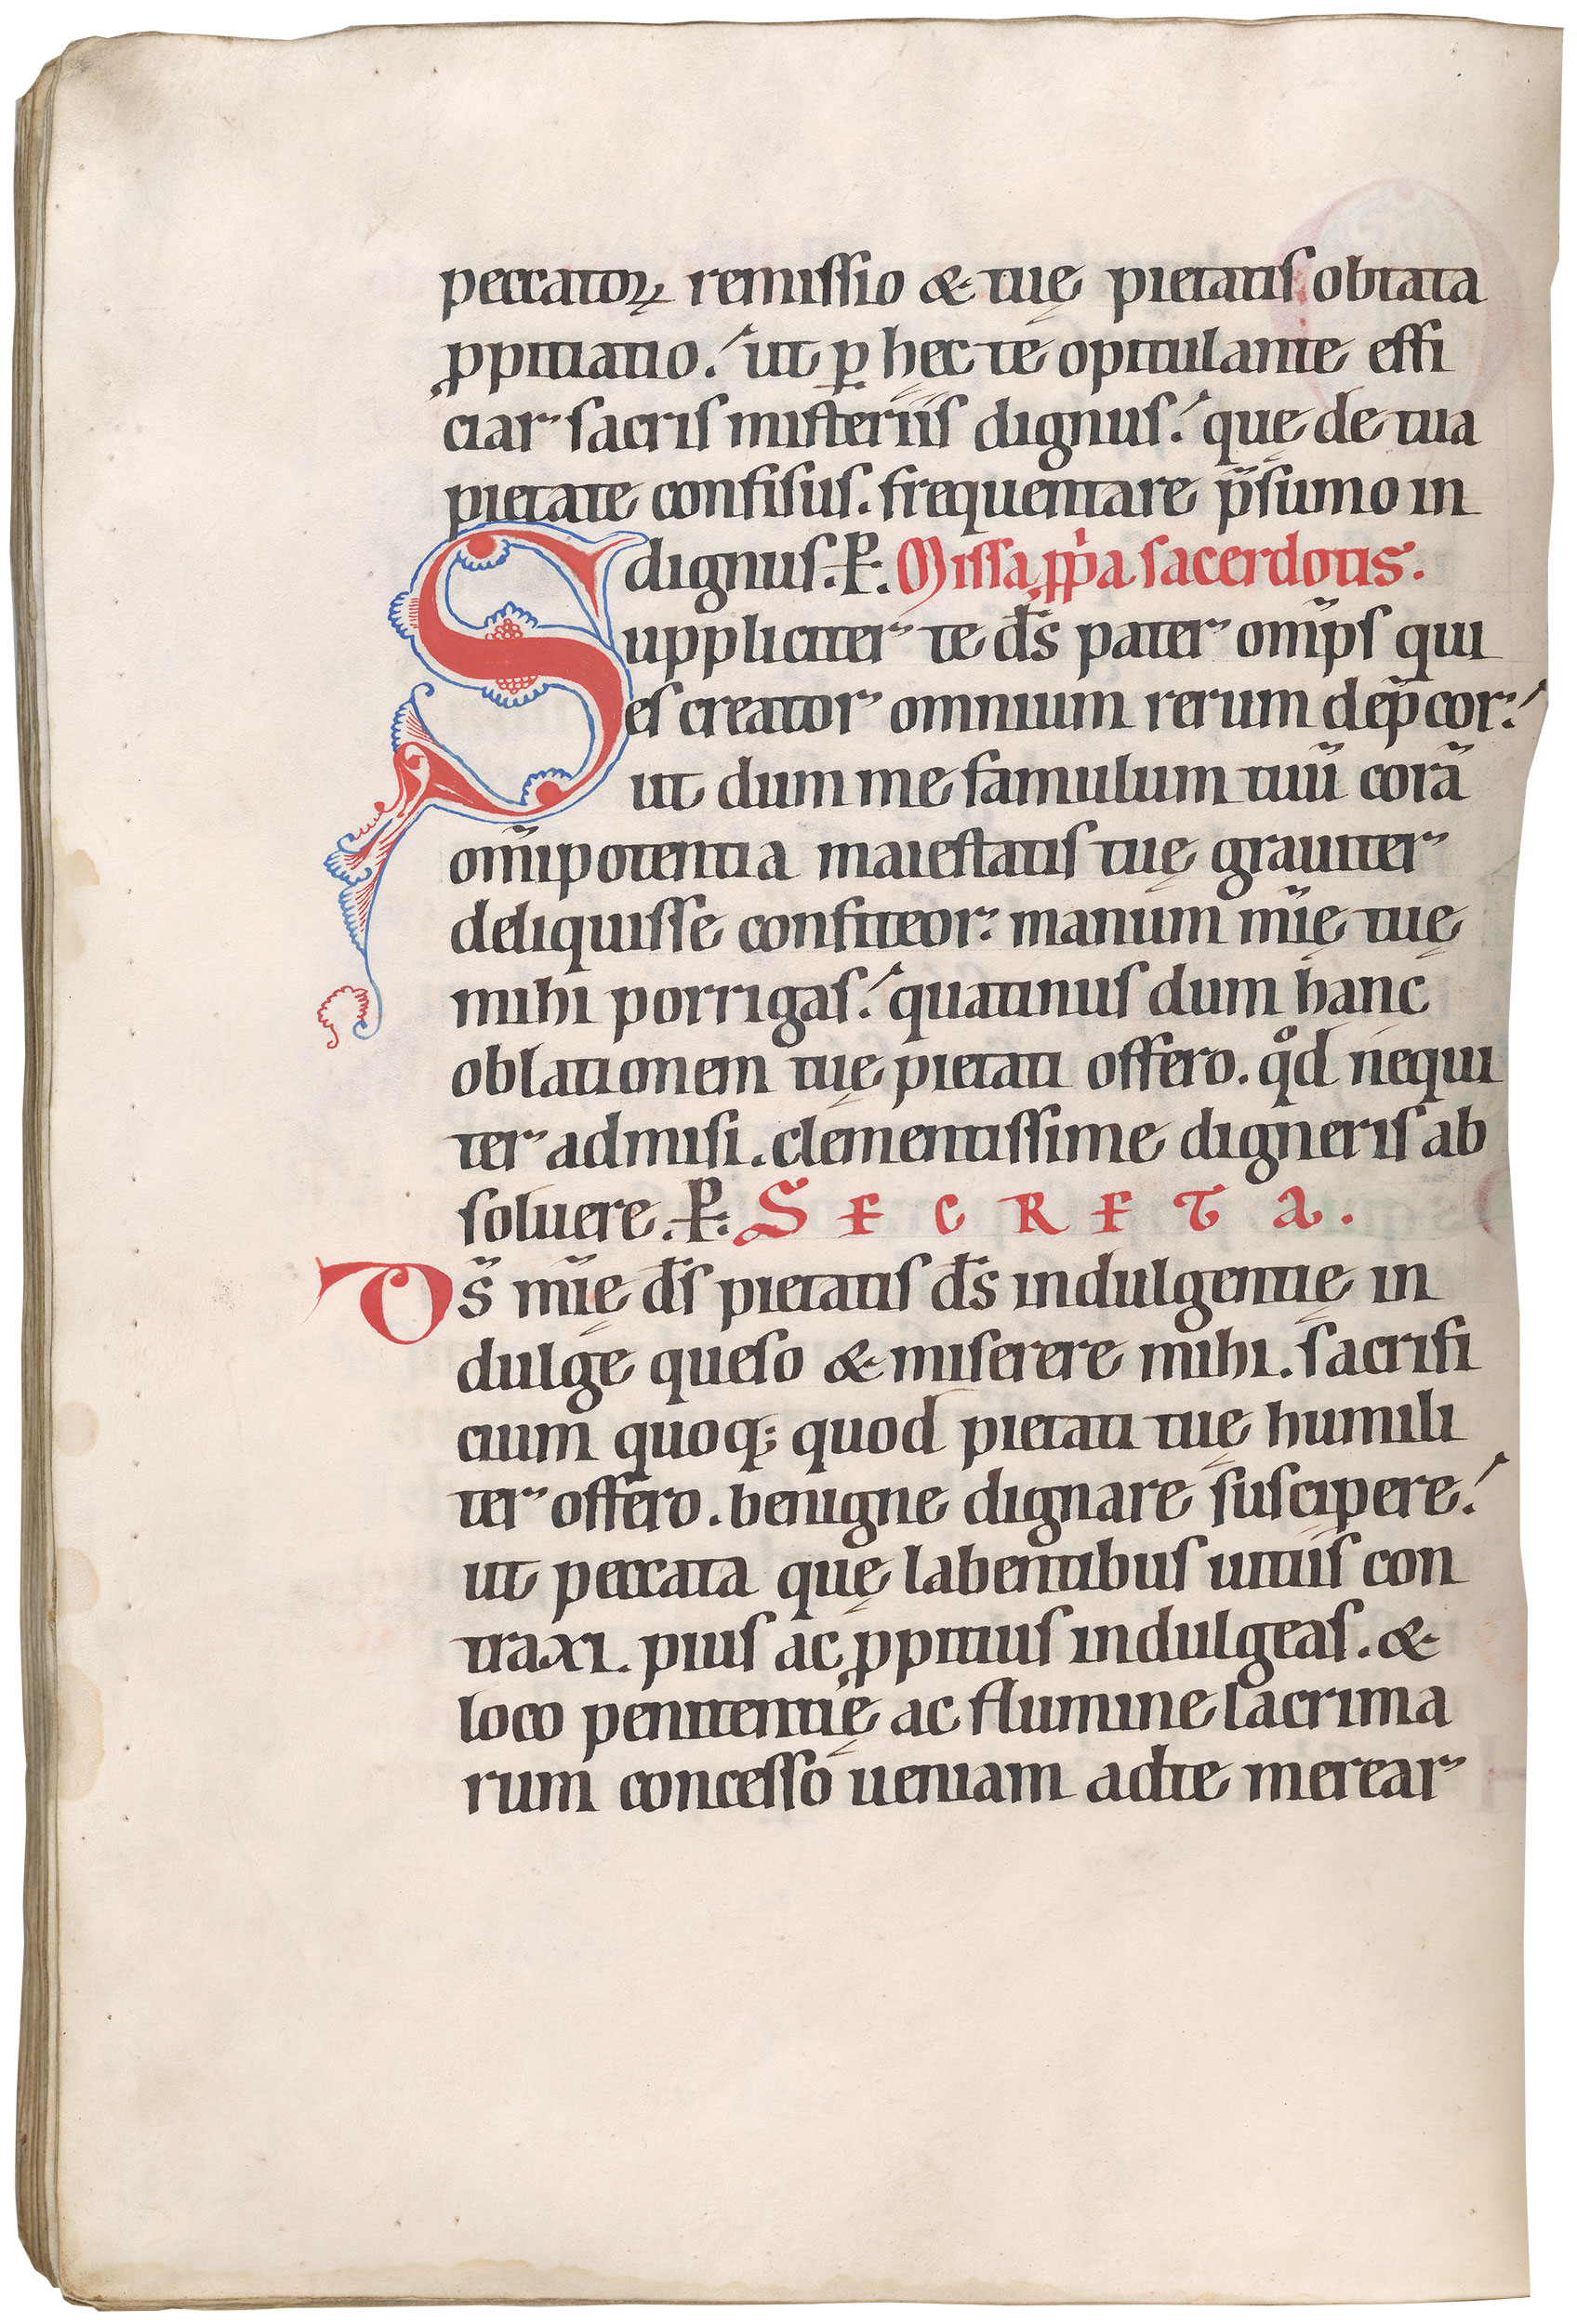 peccatoꝝ remissio & tuę pietatis obtata
ꝓpitiatio. ut ꝑ hęc te opitulante effi
ciar sacris misteriis dignus. quę de tua
pietate confisus. frequentare p̄sumo in
dignus. P. Missa ꝓp̃a sacerdotis.
Suppliciter te d̄s pater om̄ps qui
es creator omnium rerum dep̄cor.
ut dum me famulum tuū corā
om̄ipotentia maiestatis tuę grauiter
deliquisse confiteor: manum mīę tuę
mihi porrigas. quatinus dum hanc
oblationem tuę pietati offero. qͦd nequi
ter admisi. clementissime digneris ab
soluere. P. SECRETA.
Ds̄ mīę d̄s pietatis d̄s indulgentię in
dulge queso & miserere mihi. sacrifi
cium quoq; quod pietati tuę humili
ter offero. benigne dignare suscipere.
ut peccata quę labentibus uitiis con
traxi. pius ac ꝓpitius indulgeas. &
loco penitentię ac flumine lacrima
rum concesso ueniam adte merear